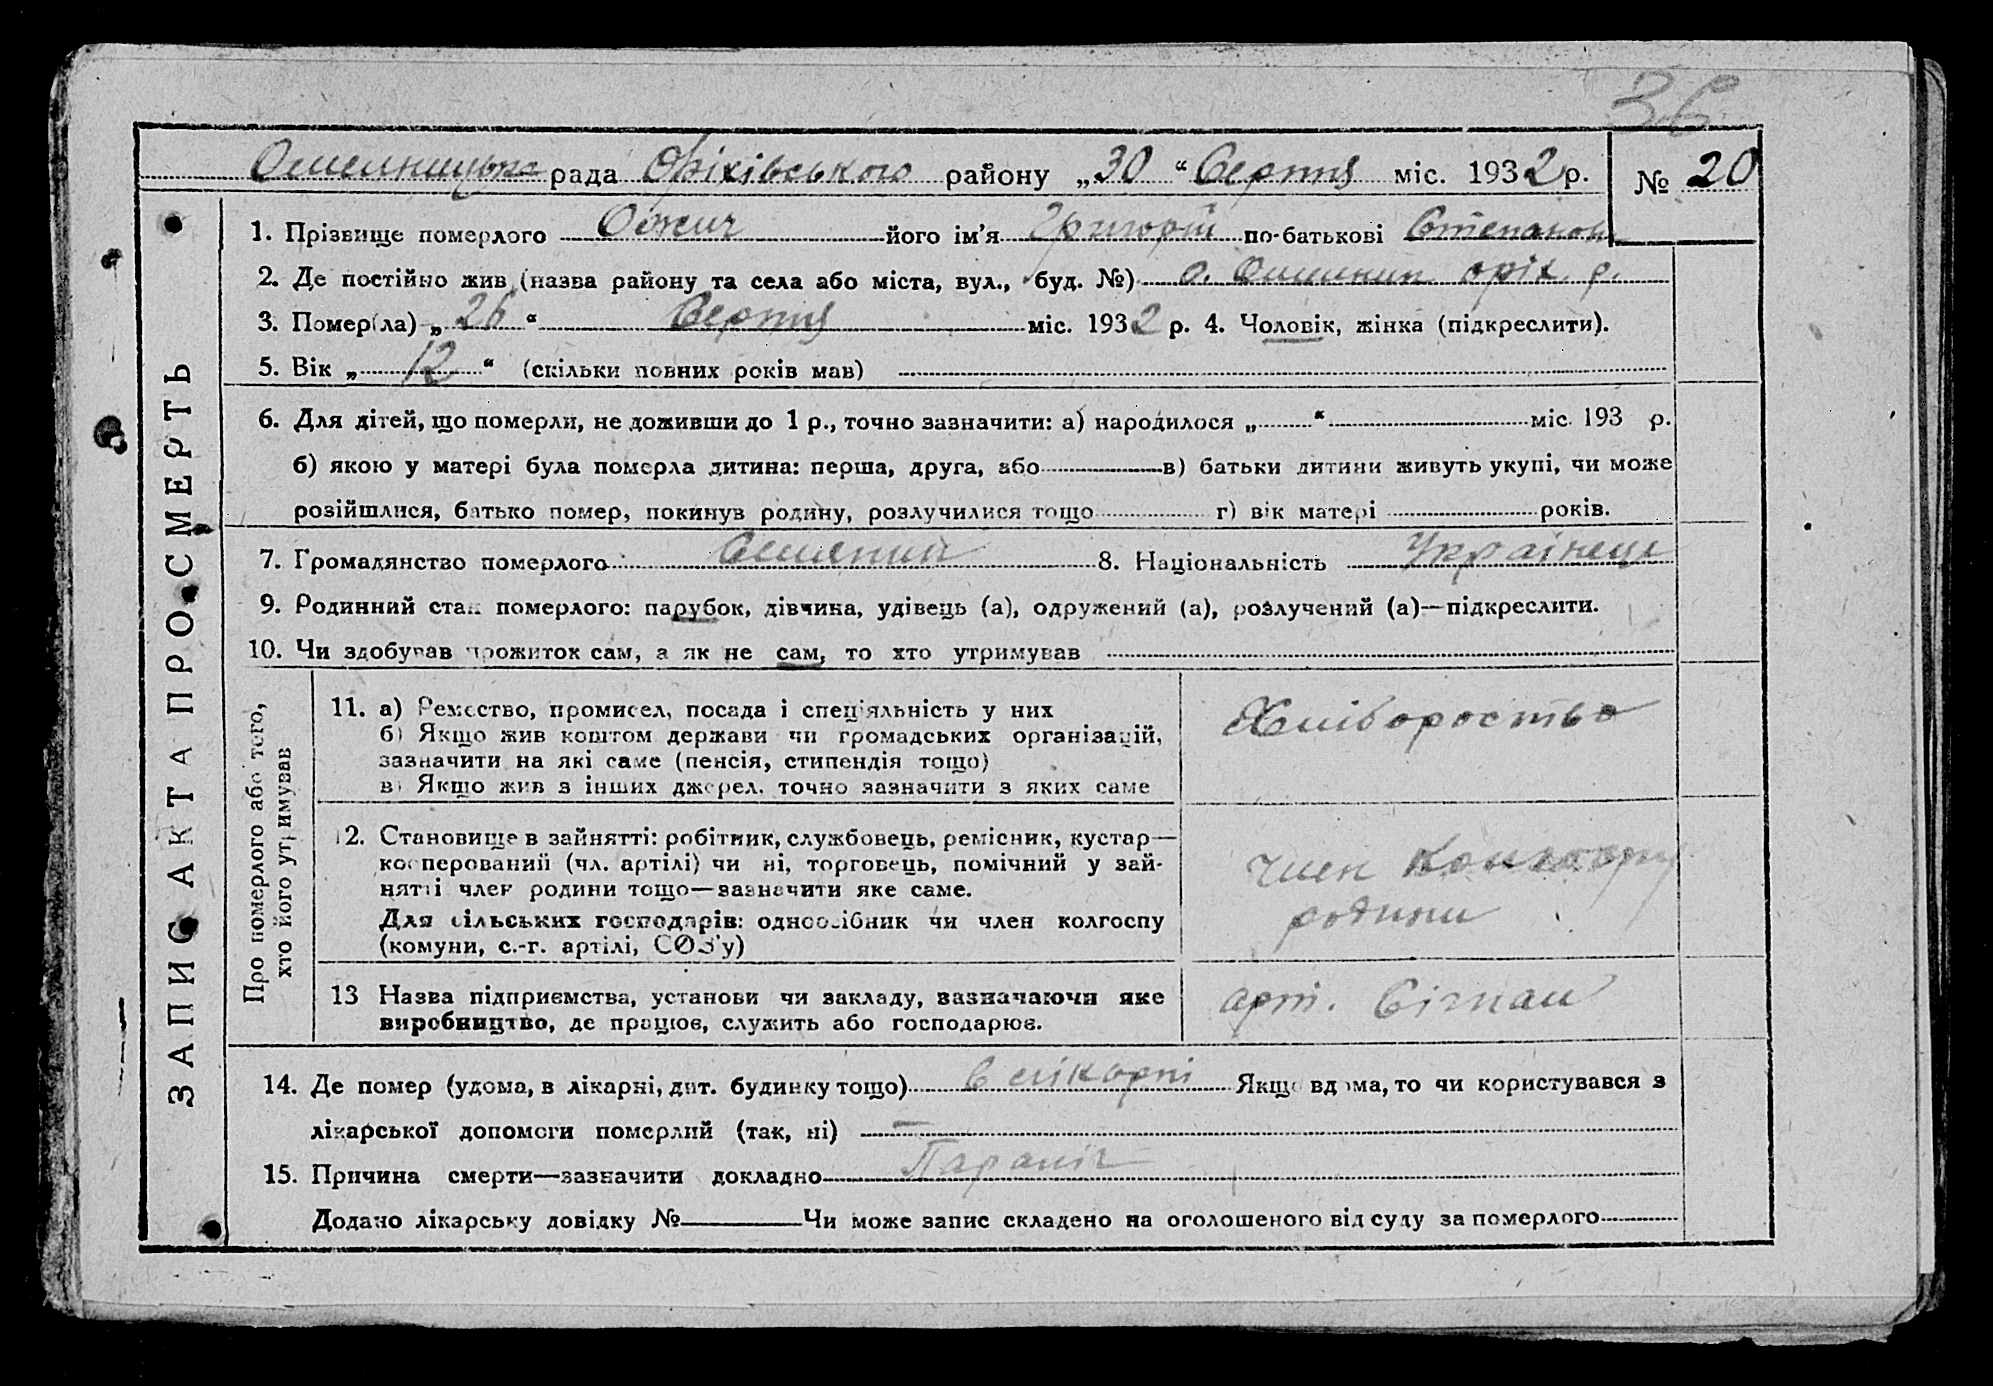 36
Омельницька рада Оріхівського району „30“ Серпня міс. 1932 р. № 20
ЗАПИС АКТА ПРО СМЕРТЬ
1. Прізвище померлого його ім'я Григорій по-батькові Степанов
2. Де постійно жив (назва району та села або міста, вул., буд. №) с. Омельник оріх. р.
3. Помер(ла) „26“ Серпня міс. 1932 р. 4. Чоловік, жінка (підкреслити).
5. Вік „12“ (скільки повних років мав)
6. Для дітей, що померли, не доживши до 1 р., точно зазначити: а) народилося „ “ міс. 193 р.
б) якою у матері була померла дитина: перша, друга, або в) батьки дитини живуть укупі, чи може
розійшлися, батько помер, покинув родину, розлучилися тощо г) вік матері років.
7. Громадянство померлого 8. Національність Українець
9. Родинний стан померлого: парубок, дівчина, удівець (а), одружений (а), розлучений (а)—підкреслити.
10. Чи здобував прожиток сам, а як не сам, то хто утримував
Про померлого або того,
хто його утримував
11. а) Ремество, промисел, посада і спеціяльність у них
б) Якщо жив коштом держави чи громадських організацій,
зазначити на які саме (пенсія, стипендія тощо)
в) Якщо жив з інших джерел, точно зазначити з яких саме
Хліборобство
12. Становище в зайнятті: робітник, службовець, ремісник, кустар—
кооперований (чл. артілі) чи ні, торговець, помічний у зай-
нятті член родини тощо—зазначити яке саме.
Для сільських господарів: одноосібник чи член колгоспу
(комуни, с.-г. артілі, СОЗ'у)
член
родини
13 Назва підприємства, установи чи закладу, зазначаючи яке
виробництво, де працює, служить або господарює.
арт. Сігнал
14. Де помер (удома, в лікарні, дит. будинку тощо) в лікарні Якщо вдома, то чи користувався з
лікарської допомоги померлий (так, ні) —
15. Причина смерти—зазначити докладно Параліч
Додано лікарську довідку № Чи може запис складено на оголошеного від суду за померлого